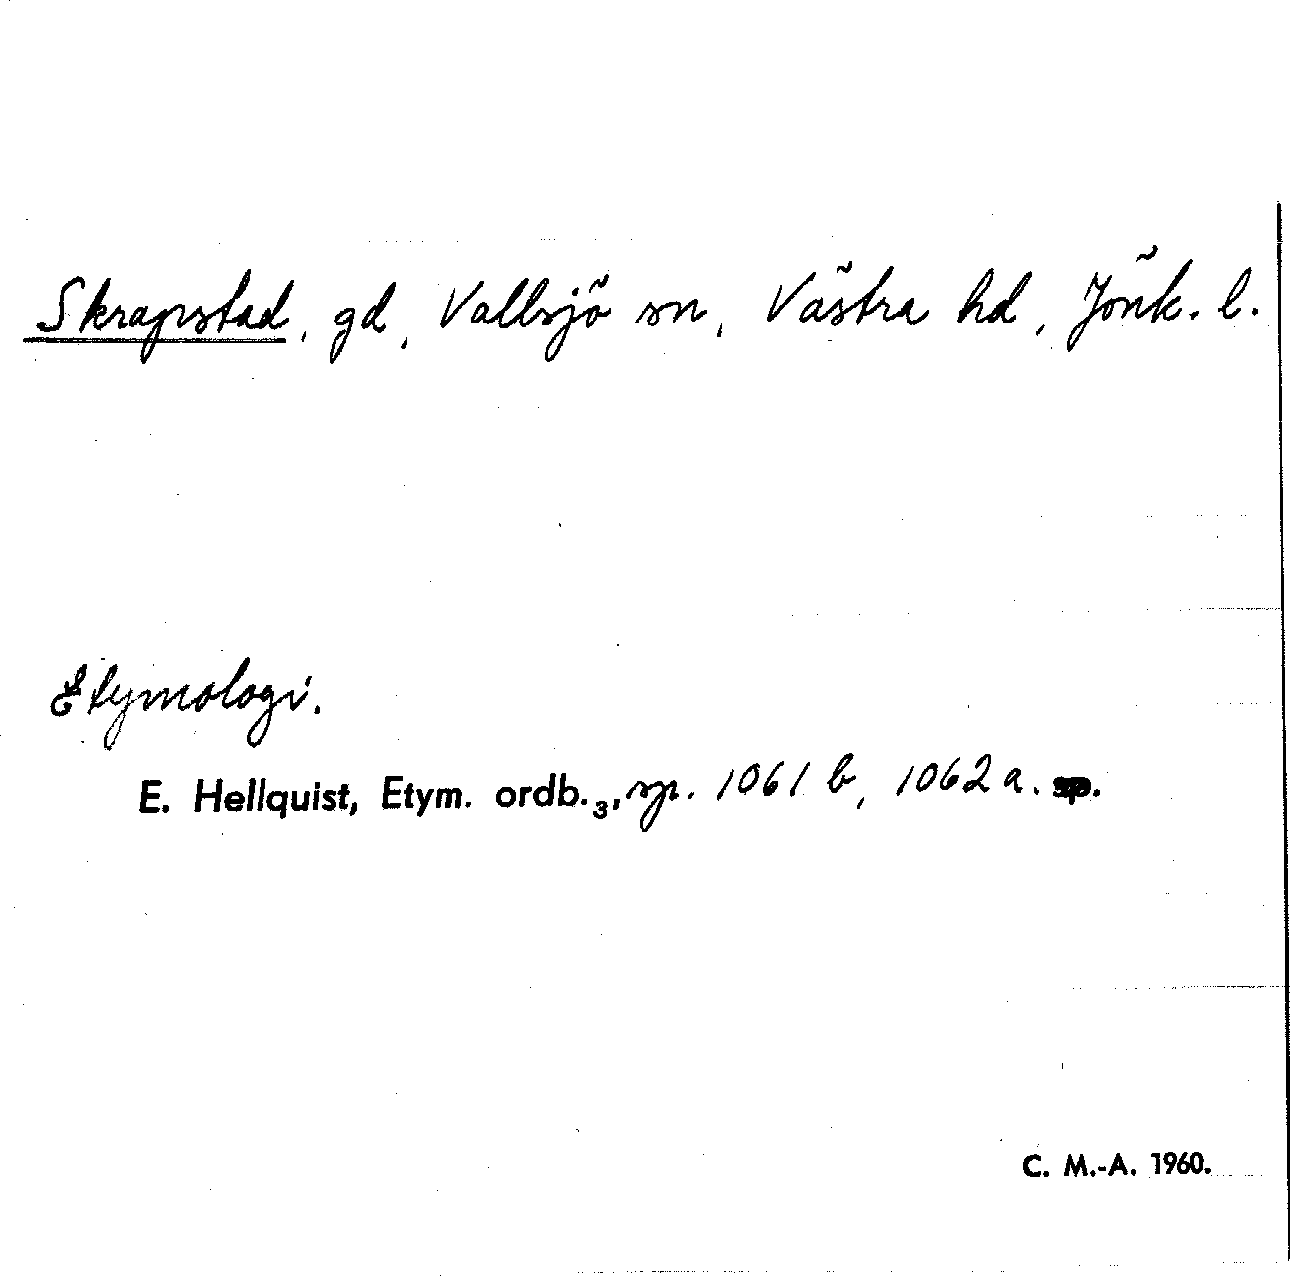 Skrapstad, gd, Vallsjö sn, Västra hd, Jönk. l.
Etymologi.
E. Hellquist, Etym. ordb.₃, sp. 1061 b, 1062 a. sp.
C. M.-A. 1960.